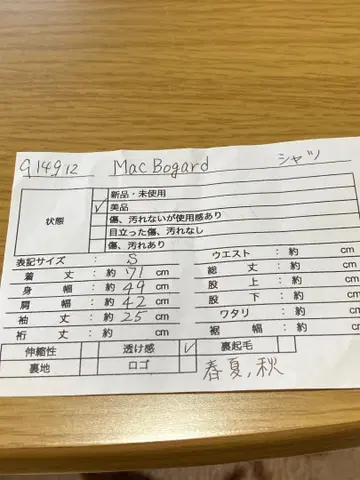 q14912 Mac Bogard シャツ
状態
新品・未使用
✓ 美品
傷、汚れないが使用感あり
目立った傷、汚れなし
傷、汚れあり
表記サイズ： S ウエスト：約 cm
着丈：約 71 cm 総丈：約 cm
身幅：約 49 cm 股上：約 cm
肩幅：約 42 cm 股下：約 cm
袖丈：約 25 cm ワタリ：約 cm
裄丈：約 cm 裾幅：約 cm
伸縮性 透け感 ✓ 裏起毛
裏地 ロゴ 春夏,秋